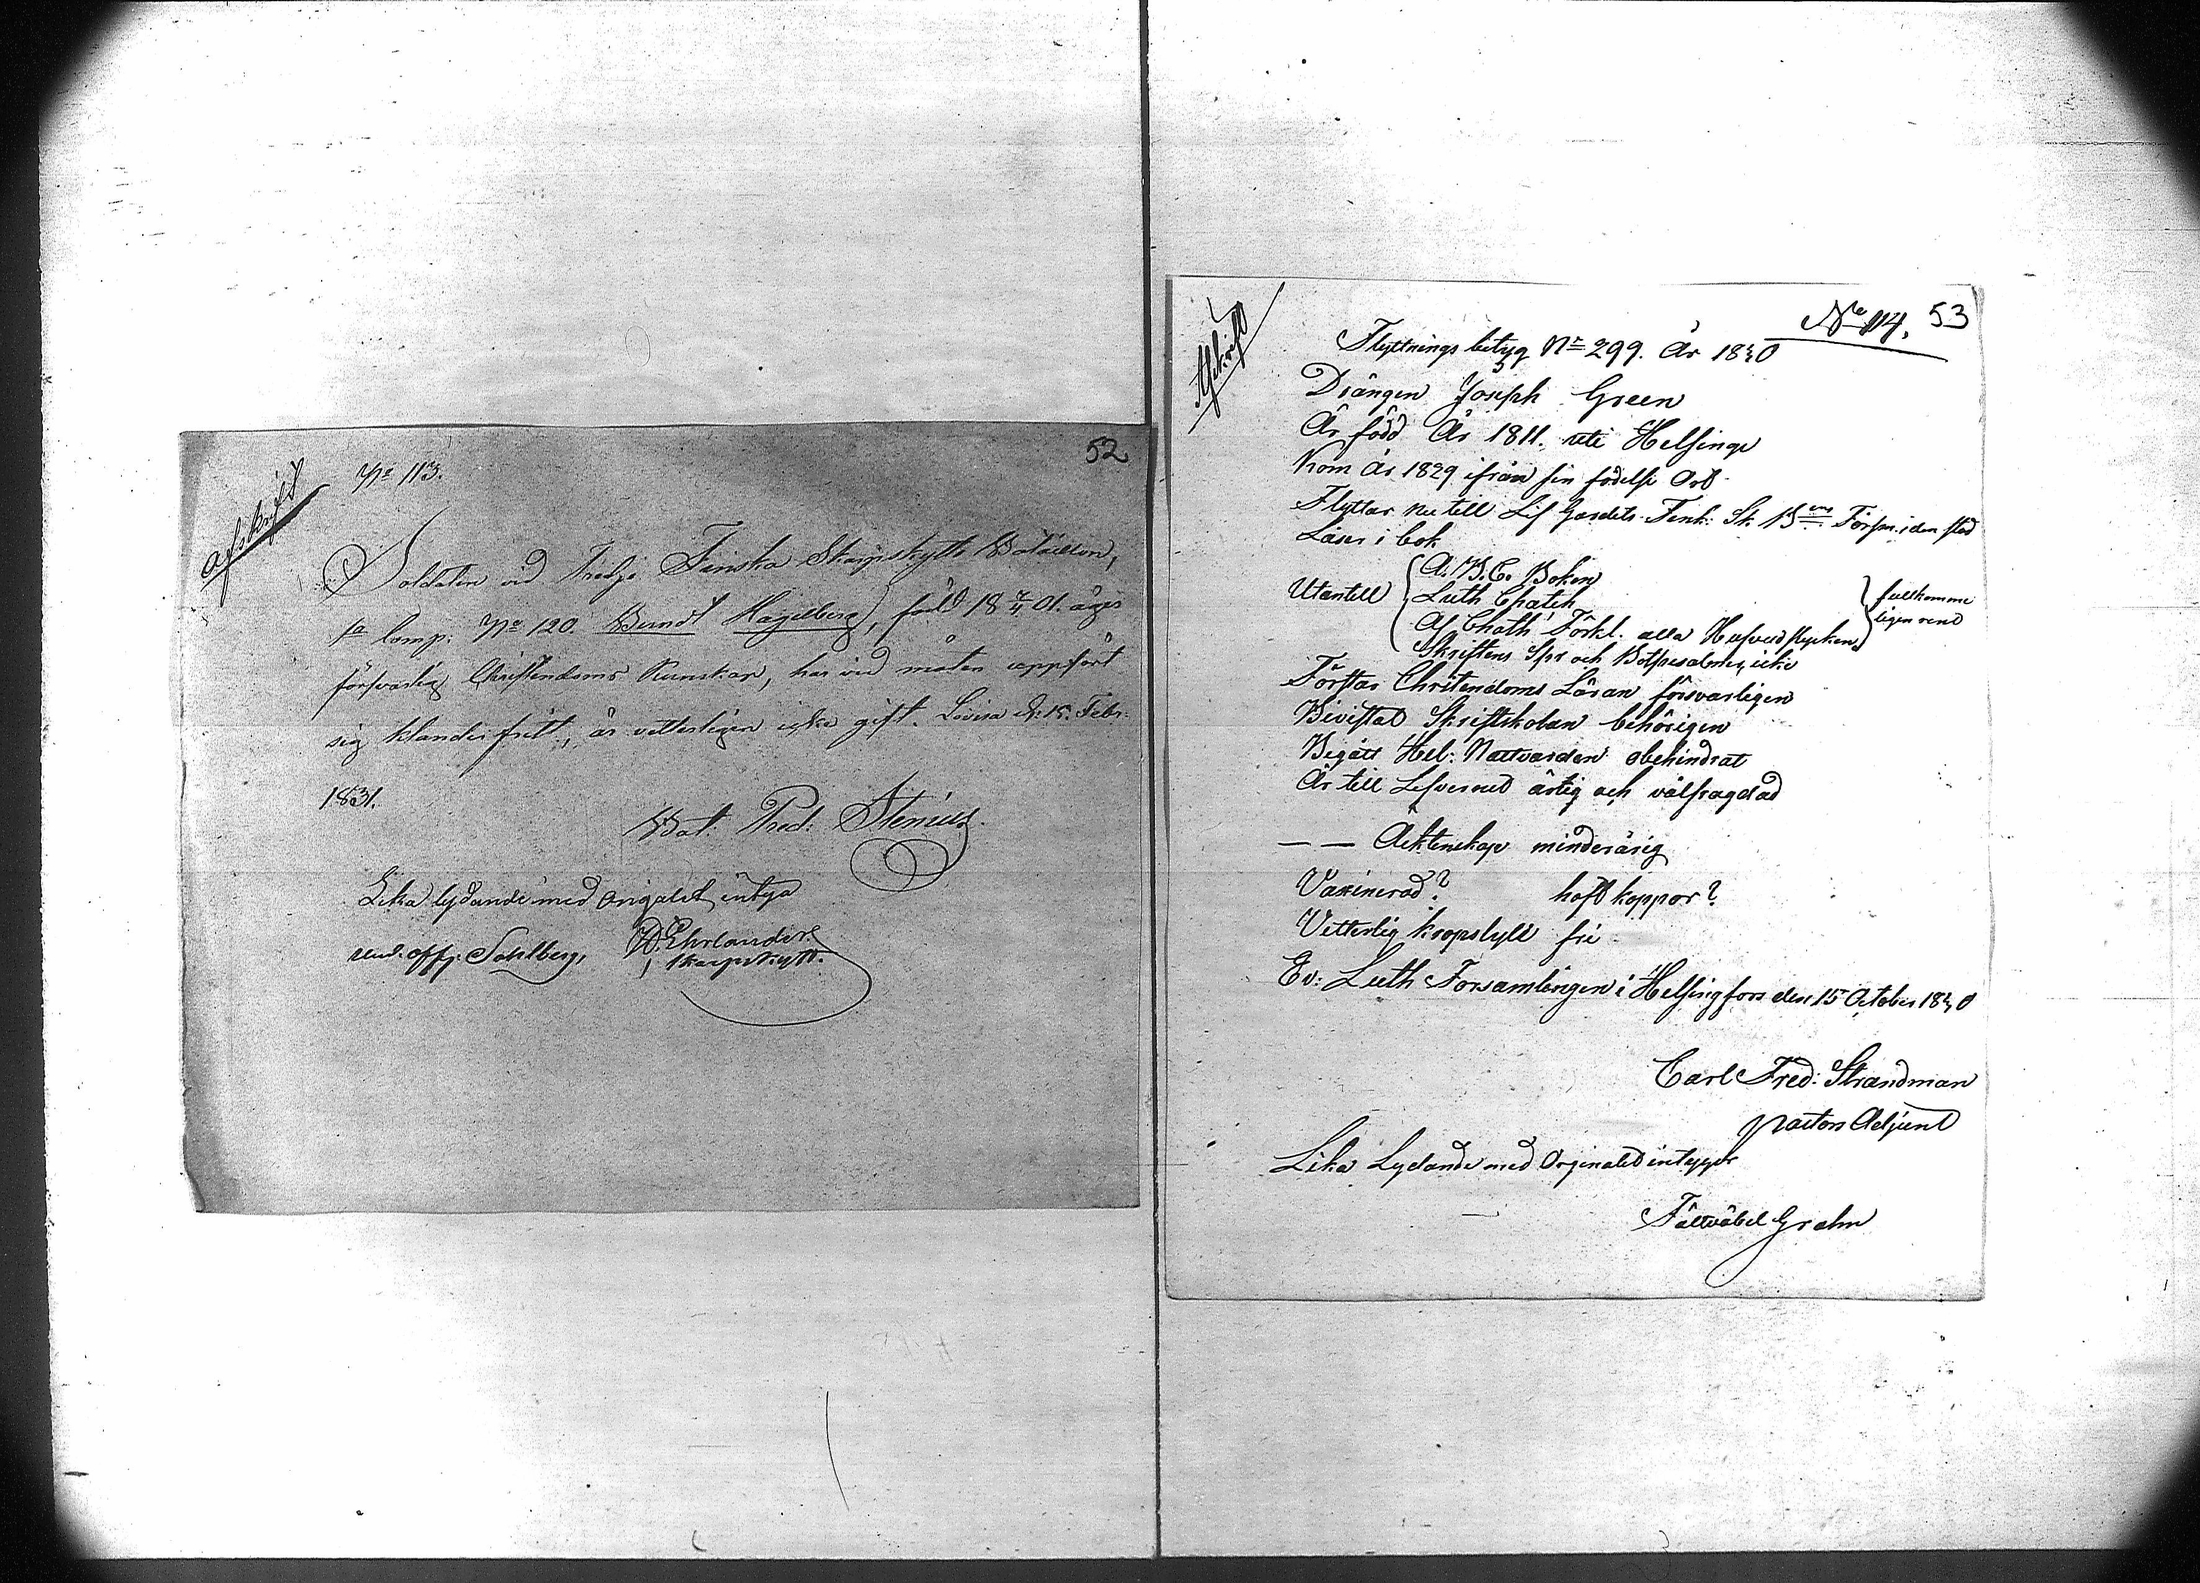 52
No 113.
afskrift
Soldaten vid Tredje Finska Skarpskytte Bataillon,
1a Comp: No 120. Berndt Hagelberg, född 18 7/4 01. äger
försvarlig Christendoms Kunskap, har vid möten uppfört
sig klanderfritt, är vetterligen icke gift. Lovisa d: 15. Febr:
1831.
Bat: Pred: Stenius.
Lika lydande med orignalet intyga
und: offj: Sahlberg, Ehrlander
skarpskytt.
No 114. 53
Afskrift
Flyttnings betyg No 299. År 1830
Drängen Joseph Green
Är född År 1811. uti Helsinge
Kom år 1829 ifrån sin födelse Ort
Flyttar nu till Lif Gardets Fink: Sk. Bns Förs: i den stad
Läser i bok
Utantill A. B. C. Boken
Luth Chatek
Af Chath Förkl. alla Hufvudstycken
Skriftens Spr och Botpsalmer, icke
fullkomme
ligen rent
Förstår Christendoms Läran försvarligen
Bivistat Skriftskolan behörigen
Begått Hel: Nattvarden obehindrat
Är till Lefverned ärlig och välfrägdad
— — Äcktenskap minderårig
Vaxinerad? haft koppor?
Vetterlig kropslyte fri
Ev: Luth Församlingen i Helsingfors den 15 October 1830
Carl Fred: Strandman
Pastors Adjunt
Lika Lydande med Orginalet intygar
Fältväbel Grahn